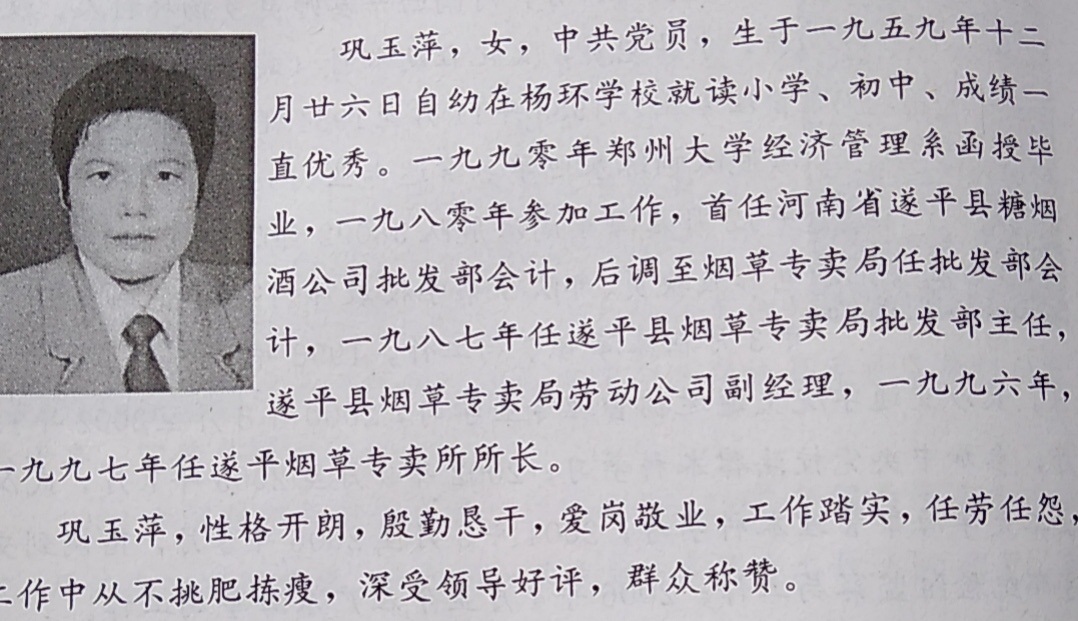 巩玉萍，女，中共党员，生于一九五九年十二
月廿六日自幼在杨环学校就读小学、初中、成绩一
直优秀。一九九零年郑州大学经济管理系函授毕
业，一九八零年参加工作，首任河南省遂平县糖烟
酒公司批发部会计，后调至烟草专卖局任批发部会
计，一九八七年任遂平县烟草专卖局批发部主任，
遂平县烟草专卖局劳动公司副经理，一九九六年，
一九九七年任遂平烟草专卖所所长。
巩玉萍，性格开朗，殷勤恳干，爱岗敬业，工作踏实，任劳任怨，
工作中从不挑肥拣瘦，深受领导好评，群众称赞。